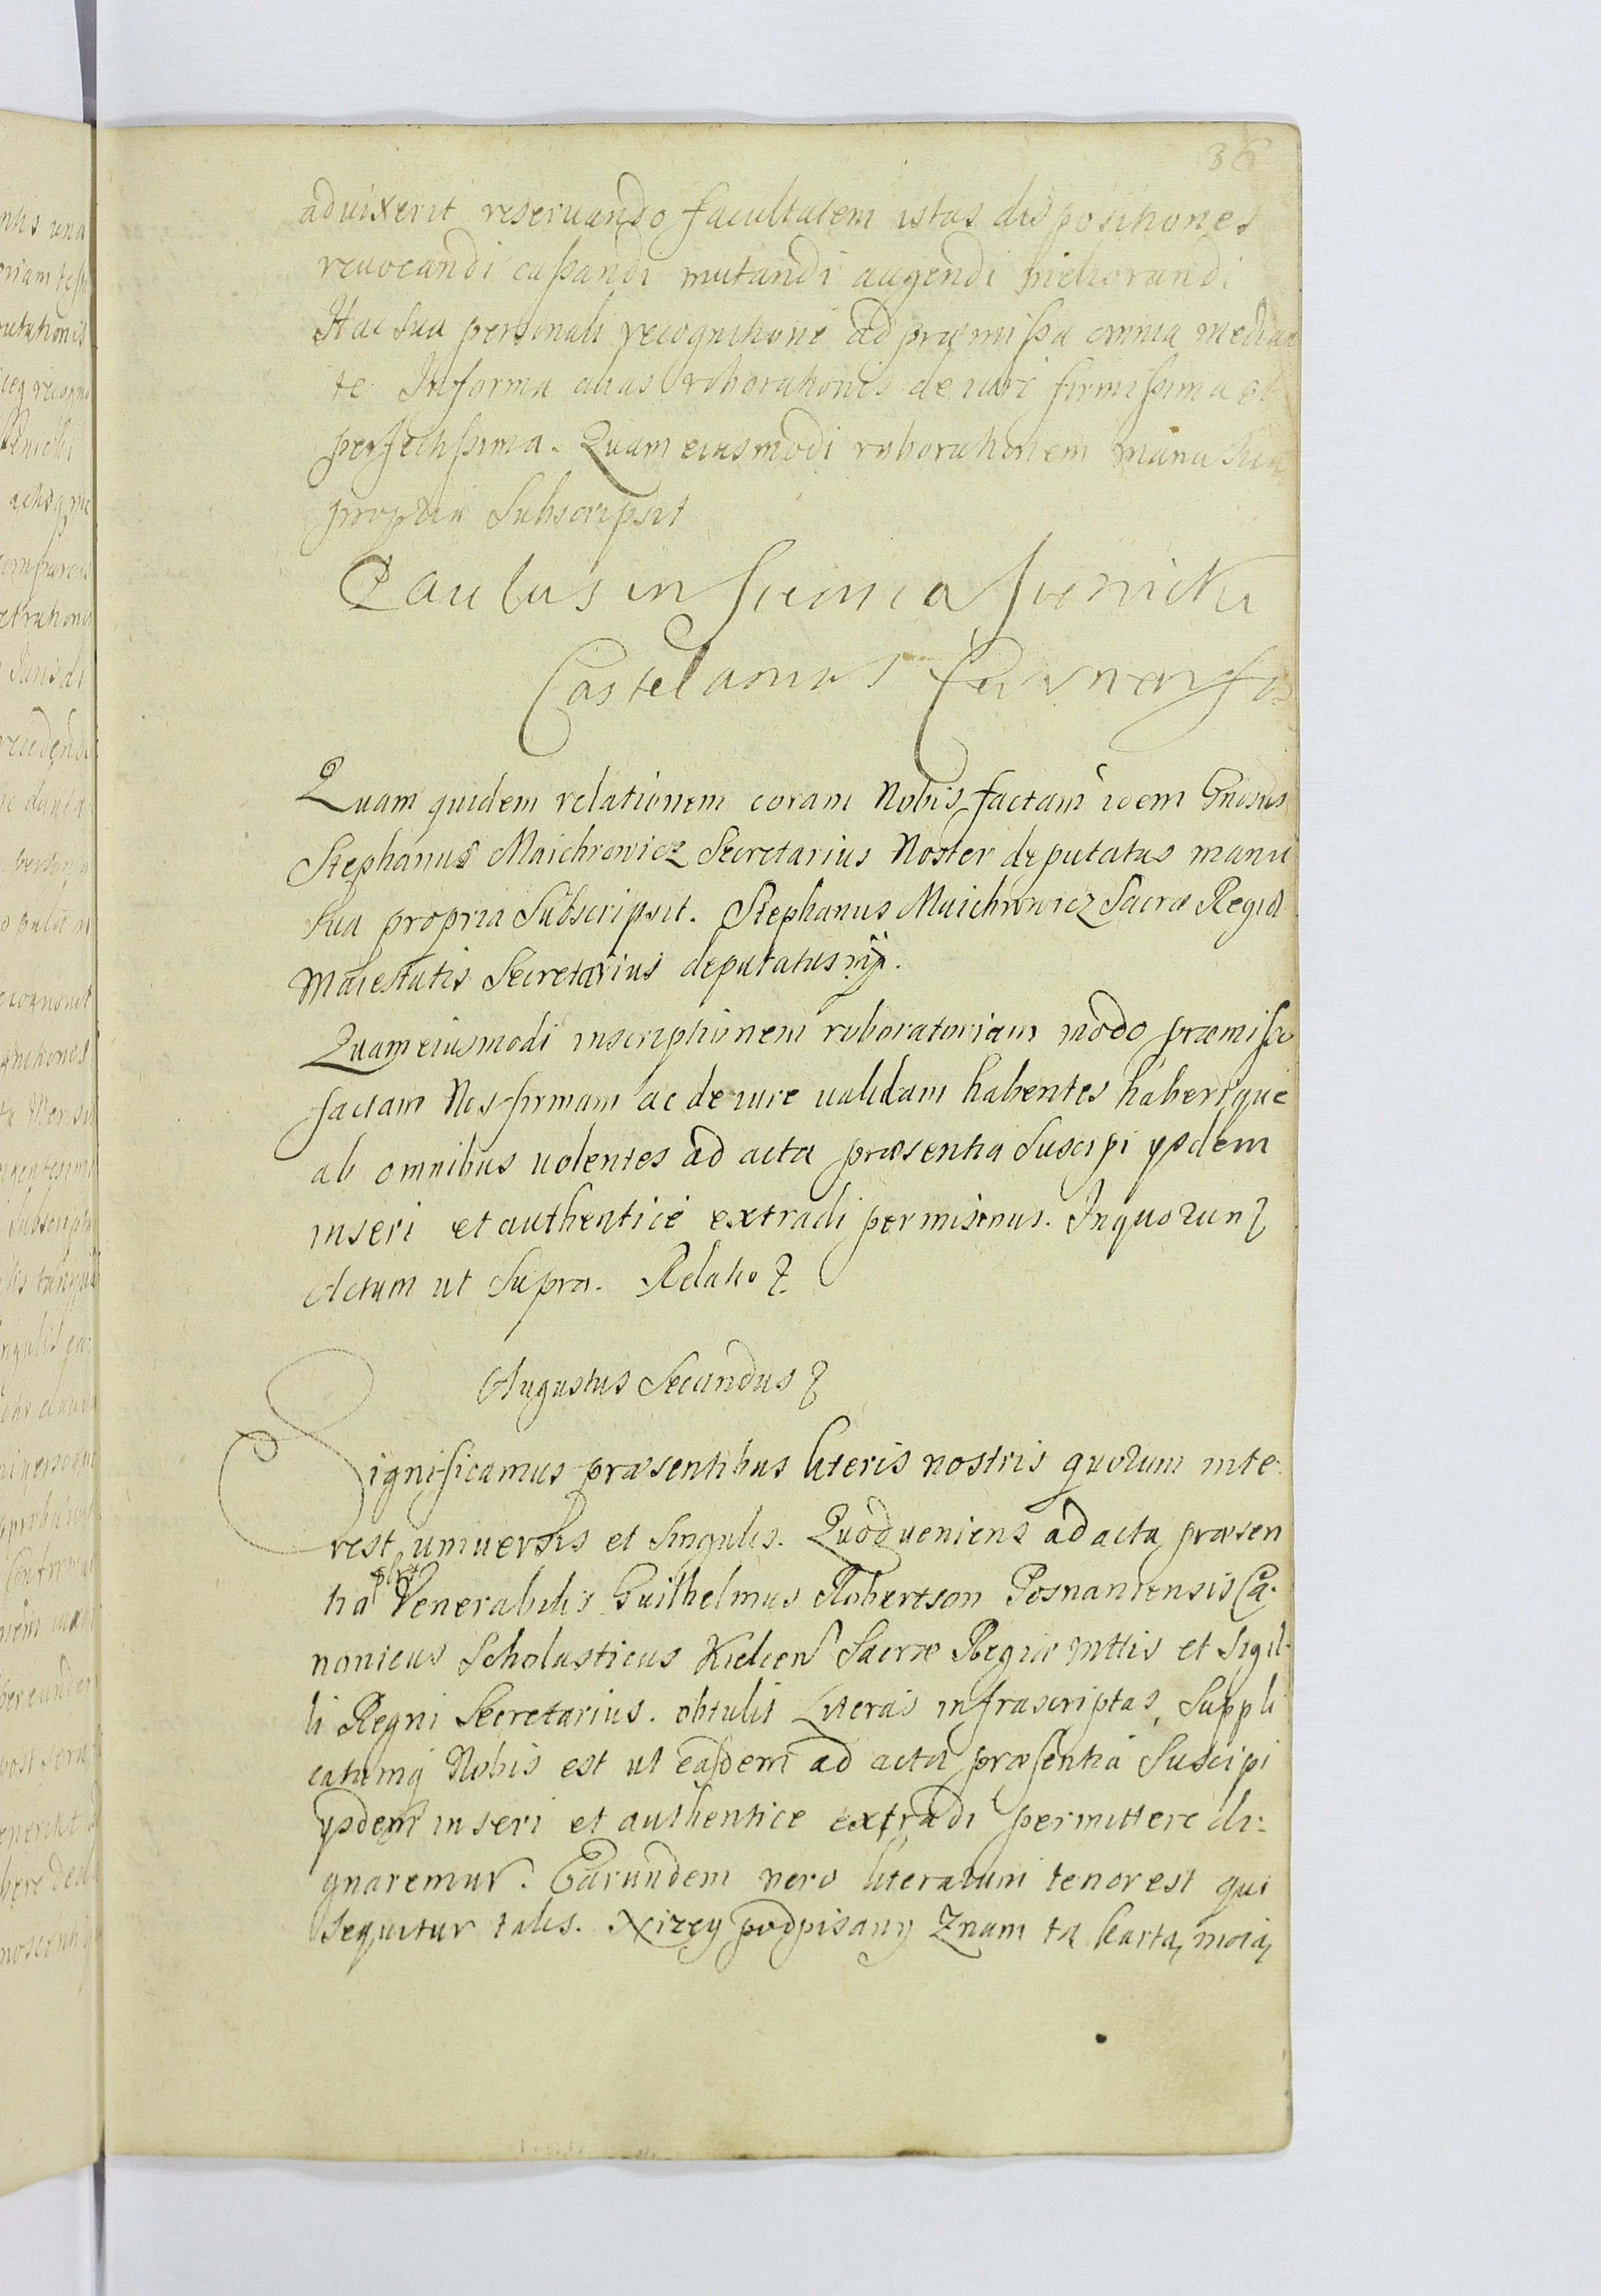 36
aduixerit reseruando facultatem istas dispositiones
reuocandi cassandi mutandi augendi meliorandi
Hac sua personali recognitione ad præmissa omnia median
te. In forma alias roborationis de iure firmissima et
perfectissima. Quam eiusmodi roborationem manu sua
propria Subscripsit
Paulus in
Castelanus
Quam quidem relationem coram Nobis factam idem Gnosus
Stephanus Maichrowicz Secretarius Noster deputatus manu
sua propria Subscripsit. Stephanus Maichrowicz Sacræ Regiæ
Maiestatis Secretarius deputatus mp.
Quam eiusmodi inscriptionem roboratoriam modo præmisso
factam Nos firmam ac de iure ualidam habentes haberique
ab omnibus uolentes ad acta præsentia Suscipi ysdem
inseri et authentice extradi permisimus. In quorum
Actum ut Supra. Relatio
Augustus Secundus
Significamus præsentibus literis nostris quorum inte:
rest uniuersis et Singulis. Quod ueniens ad acta præsen
tia Venerabilis Guilhelmus Robertson Posnaniensis Ca:
nonicus Scholasticus Kielcen Sacræ Regiæ Mttis et Sigil:
li Regni Secretarius. obtulit Literas infrascriptas, Suppli
catumq Nobis est ut easdem ad acta præsentia Suscipi
ysdem inseri et authentice extradi permittere di:
gnaremur. Earundem vero literarum tenor est qui
Sequitur talis. Niżey podpisany Znam tą kartą moią